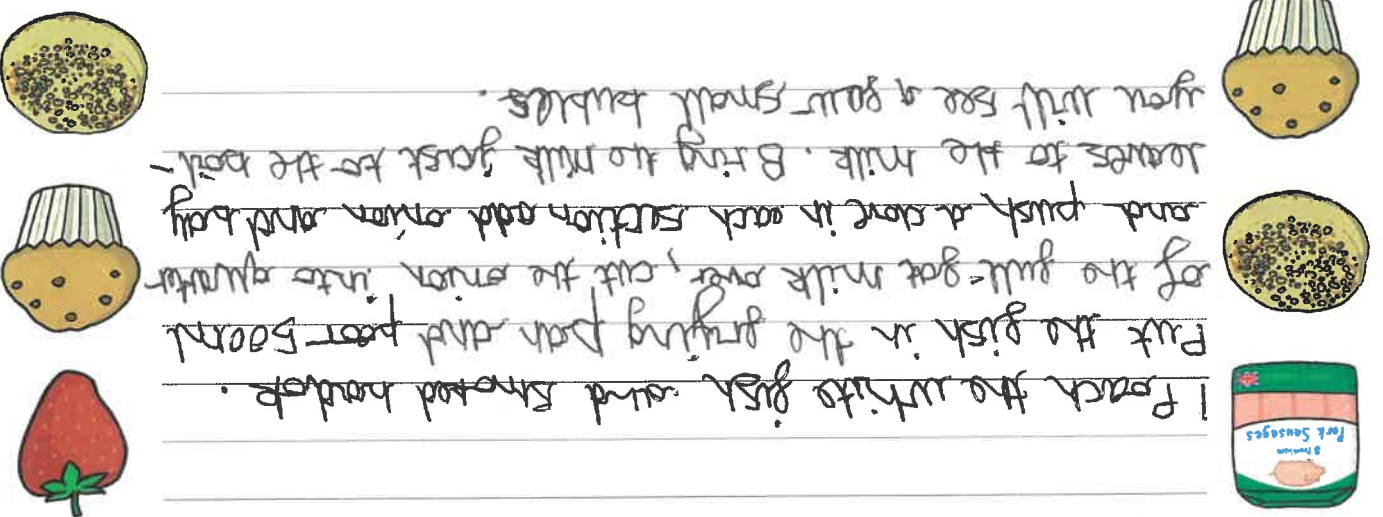 1 Poach the white fish and smoked haddok.
Put the fish in the frying pan and poor 500ml
of the full-fat milk over, cut the onion into quarter
and push a clove in each section add onion and bay
leaves to the milk. Bring the milk just to the boil-
you will see a few small bubles.
8 Premium
Pork Sausages